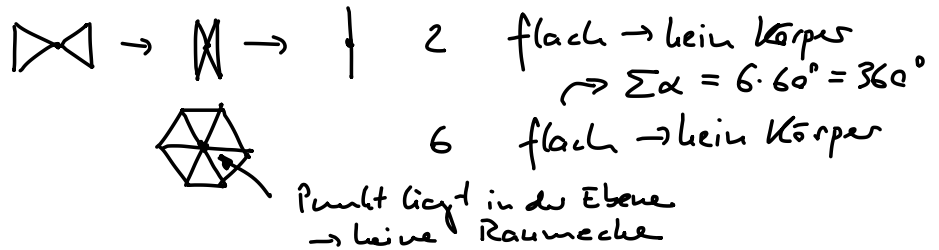 → → 2 flach → kein Körper
→ Σα = 6·60° = 360°
6 flach → kein Körper
Punkt liegt in der Ebene
→ keine Raumecke